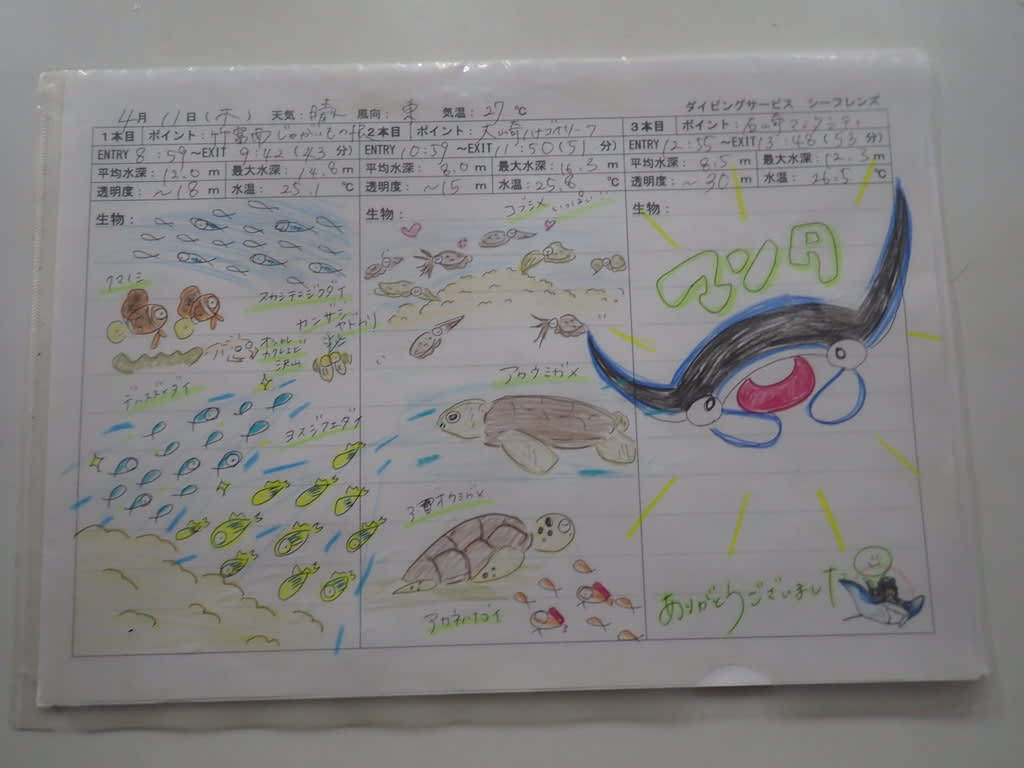 4月 11日(木) 天気:晴れ 風向:東 気温:27℃
ダイビングサービス シーフレンズ
1本目 ポイント:竹富南じゃがいもの根
ENTRY 8:59~EXIT 9:42(43分)
平均水深:12.0m 最大水深:14.8m
透明度:~18m 水温:25.1℃
生物:
クマノミ
スカシテンジクダイ
カンザシヤドカリ
オドリカクレエビ
沢山
デバスズメダイ
ヨスジフエダイ
2本目 ポイント:大崎ハナゴイリーフ
ENTRY 10:59~EXIT 11:50(51分)
平均水深:8.0m 最大水深:16.3m
透明度:~15m 水温:25.8℃
生物:
コブシメ いっぱい
アカウミガメ
アオウミガメ
アカネハナゴイ
3本目 ポイント:石崎マンタシティ
ENTRY 12:55~EXIT 13:48(53分)
平均水深:8.5m 最大水深:12.3m
透明度:~30m 水温:26.5℃
生物:
マンタ
ありがとうございました